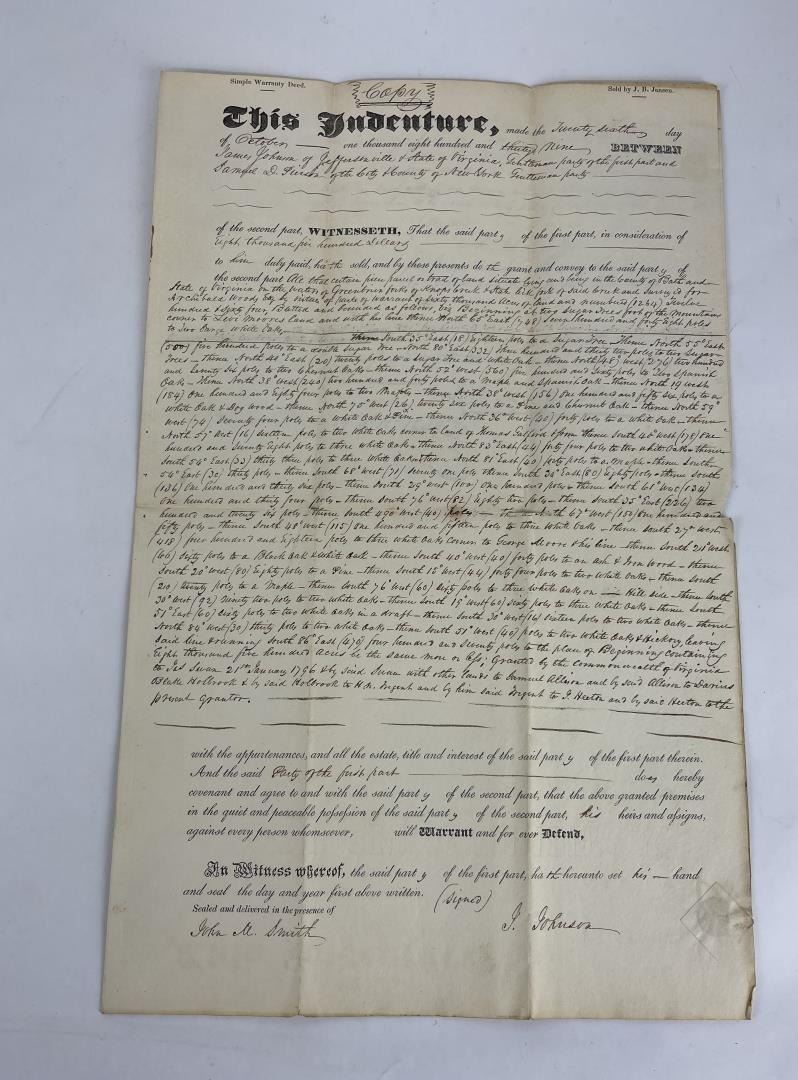 Simple Warranty Deed.
Copy
Sold by J. B. Jansen.
This Indenture, made the Twenty sixth day
of October one thousand eight hundred and thirty Nine BETWEEN
James Johnson of Jeffersonville & State of Virginia, Gentleman party of the first part and
Samuel D. of the City & County of New York Gentleman party
of the second part, WITNESSETH, That the said party of the first part, in consideration of
Eight thousand five hundred Dollars
to him duly paid, hath sold, and by these presents doth grant and convey to the said party of
the second part All that certain piece parcel or tract of land situate lying and being in the County of Bath and
State of Virginia on the waters of Greenbrier forks of Knaps Creek & of said creek and surveyed for
Archibald Woods Esq by virtue of part of warrant of sixty thousand acres of land and numbered (1264) Twelve
hundred & sixty four Butted and bounded as follows, viz Beginning at two Sugar Trees foot of the Mountains
corner to Levi Moores land and with his line thence North 65° East (748) Seven hundred and forty Eight poles
to two large White Oaks. Thence South 35° East (18) Eighteen poles to a Sugar Tree - Thence North 55° East
(500) five hundred poles to a double Sugar Tree - North 80° East (332) three hundred and thirty two poles to two Sugar
Trees - thence North 40° East (20) twenty poles to a Sugar Tree and White Oak - thence North (48) West (276) two hundred
and seventy six poles to two Chesnut Oaks - thence North 52° West (560) five hundred and sixty poles to two Spanish
Oaks - thence North 38° West (240) two hundred and forty poles to a Maple and Spanish Oak - thence North 19 West
(184) One hundred and Eighty four poles to two Maples - thence North 38° West (156) One hundred and fifty six poles to a
White Oak & Dog wood - thence North 70° West (26) twenty six poles to a Pine and Chesnut Oak - thence North 59°
West (74) Seventy four poles to a White Oak & Pine - thence North 36° West (40) forty poles to a White Oak - thence
North 57° West (16) sixteen poles to two White Oaks corner to Land of Thomas & from thence South 40° West (178) One
hundred and Seventy Eight poles to three White Oaks - thence North 83° East (44) forty four poles to two White Oaks - thence
South 54° East (33) thirty three poles to three White Oaks - thence North 81° East (40) forty poles to a Maple - thence South
54° East (30) thirty poles - thence South 68° West (71) Seventy one poles thence South 30° East (80) Eighty poles - thence South
(136) One hundred and thirty six poles - thence South 29° West (100) One hundred poles - thence South 61° West (134)
One hundred and thirty four poles - thence South 76° West (82) Eighty two poles - thence South 35° East (226) two
hundred and twenty six poles - thence South 49° West (40) poles - North 67° West (150) One hundred and
fifty poles - thence South 48° West (115) one hundred and fifteen poles to three White Oaks - thence South 27° West
(418) four hundred and Eighteen poles to three White Oaks corner to George Moore & his line - thence South 21° West
(60) sixty poles to a Black Oak & White Oak - thence South 40° West (40) forty poles to an Ash & Iron Wood - thence
South 20° West (80) Eighty poles to a Pine - thence South 15° West (44) forty four poles to two White Oaks - thence South
(20) twenty poles to a Maple - thence South 76° West (60) sixty poles to three White Oaks on Hill side - thence South
30° West (92) Ninety two poles to two White Oaks - thence South 19° West (60) sixty poles to three White Oaks - thence South
51° East (60) sixty poles to two White Oaks in a draft - thence South 30° West (16) sixteen poles to two White Oaks - thence
North 84° West (30) thirty poles to two White Oaks - thence South 51° West (40) poles to two White Oaks & Hickory, leaving
said line & running South 86° East (470) four hundred and seventy poles to the place of Beginning containing
Eight thousand five hundred Acres be the same more or less; Granted by the Commonwealth of Virginia
to Jas Swan 21st January 1796 & by said Swan with other lands to Samuel Allison and by said Allison to Darius
Blake Holbrook & by said Holbrook to H. N. Sargent and by him said Sargent to J. Heeton and by said Heeton to the
present Grantor.
with the appurtenances, and all the estate, title and interest of the said party of the first part therein.
And the said Party of the first part does hereby
covenant and agree to and with the said party of the second part, that the above granted premises
in the quiet and peaceable possession of the said party of the second part, his heirs and assigns,
against every person whomsoever, will Warrant and for ever Defend,
In Witness whereof, the said party of the first part, hath hereunto set his hand
and seal the day and year first above written.
(signed)
Sealed and delivered in the presence of
John M. Smith
J. Johnson